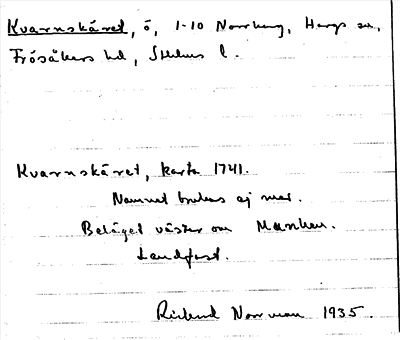 Kvarnskäret, ö, 1-10 Norrberg, Hargs sn,
Frösåkers hd, Sthlms l.
Kvarnskäret, karta 1741.
Namnet brukas ej mer.
Beläget väster om
Landfast.
Rickard Norrman 1935.